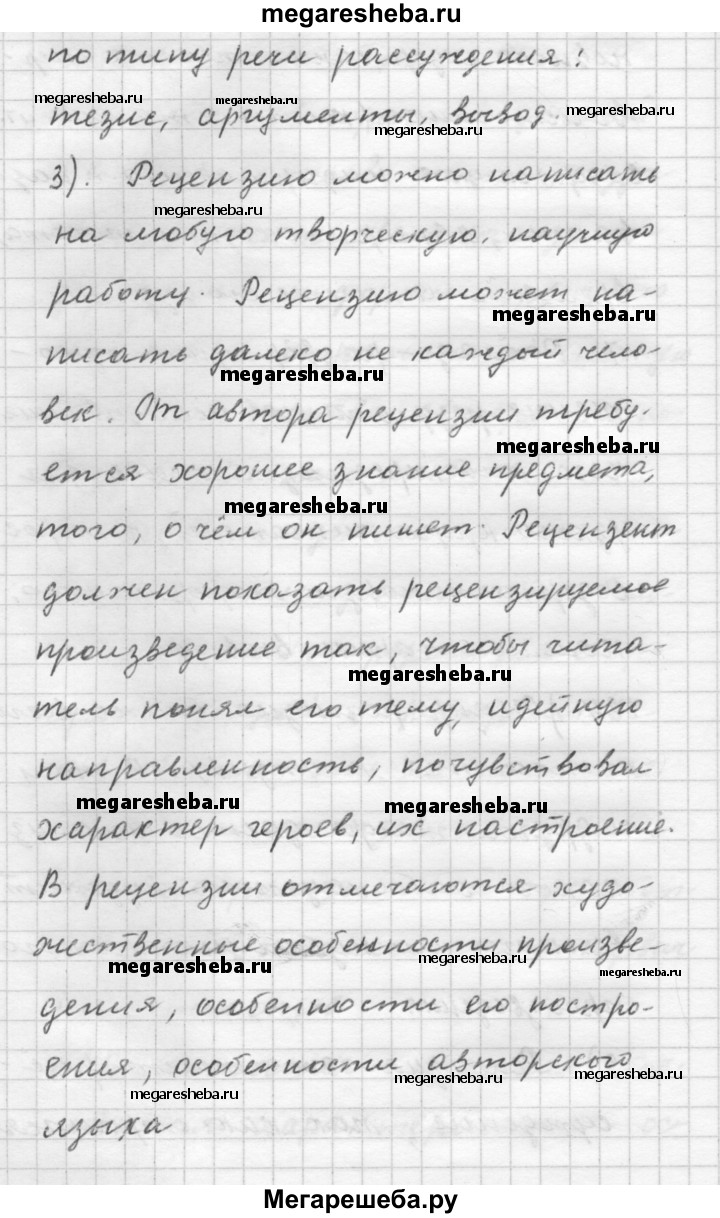 megaresheba.ru
по типу речи рассуждения:
megaresheba.ru megaresheba.ru
тезис, аргументы, вывод.
megaresheba.ru megaresheba.ru
3). Рецензию можно написать
megaresheba.ru
на любую творческую, научную
работу. Рецензию может на-
megaresheba.ru
писать далеко не каждый чело-
megaresheba.ru
век. От автора рецензии требу-
megaresheba.ru
ется хорошее знание предмета,
megaresheba.ru
того, о чём он пишет. Рецензент
должен показать рецензируемое
произведение так, чтобы чита-
megaresheba.ru
тель понял его тему, идейную
направленность, почувствовал
megaresheba.ru megaresheba.ru
характер героев, их настроение.
В рецензии отмечаются худо-
жественные особенности произве-
megaresheba.ru megaresheba.ru megaresheba.ru
дения, особенности его постро-
ения, особенности авторского
megaresheba.ru megaresheba.ru megaresheba.ru
языка
Мегарешеба.ру